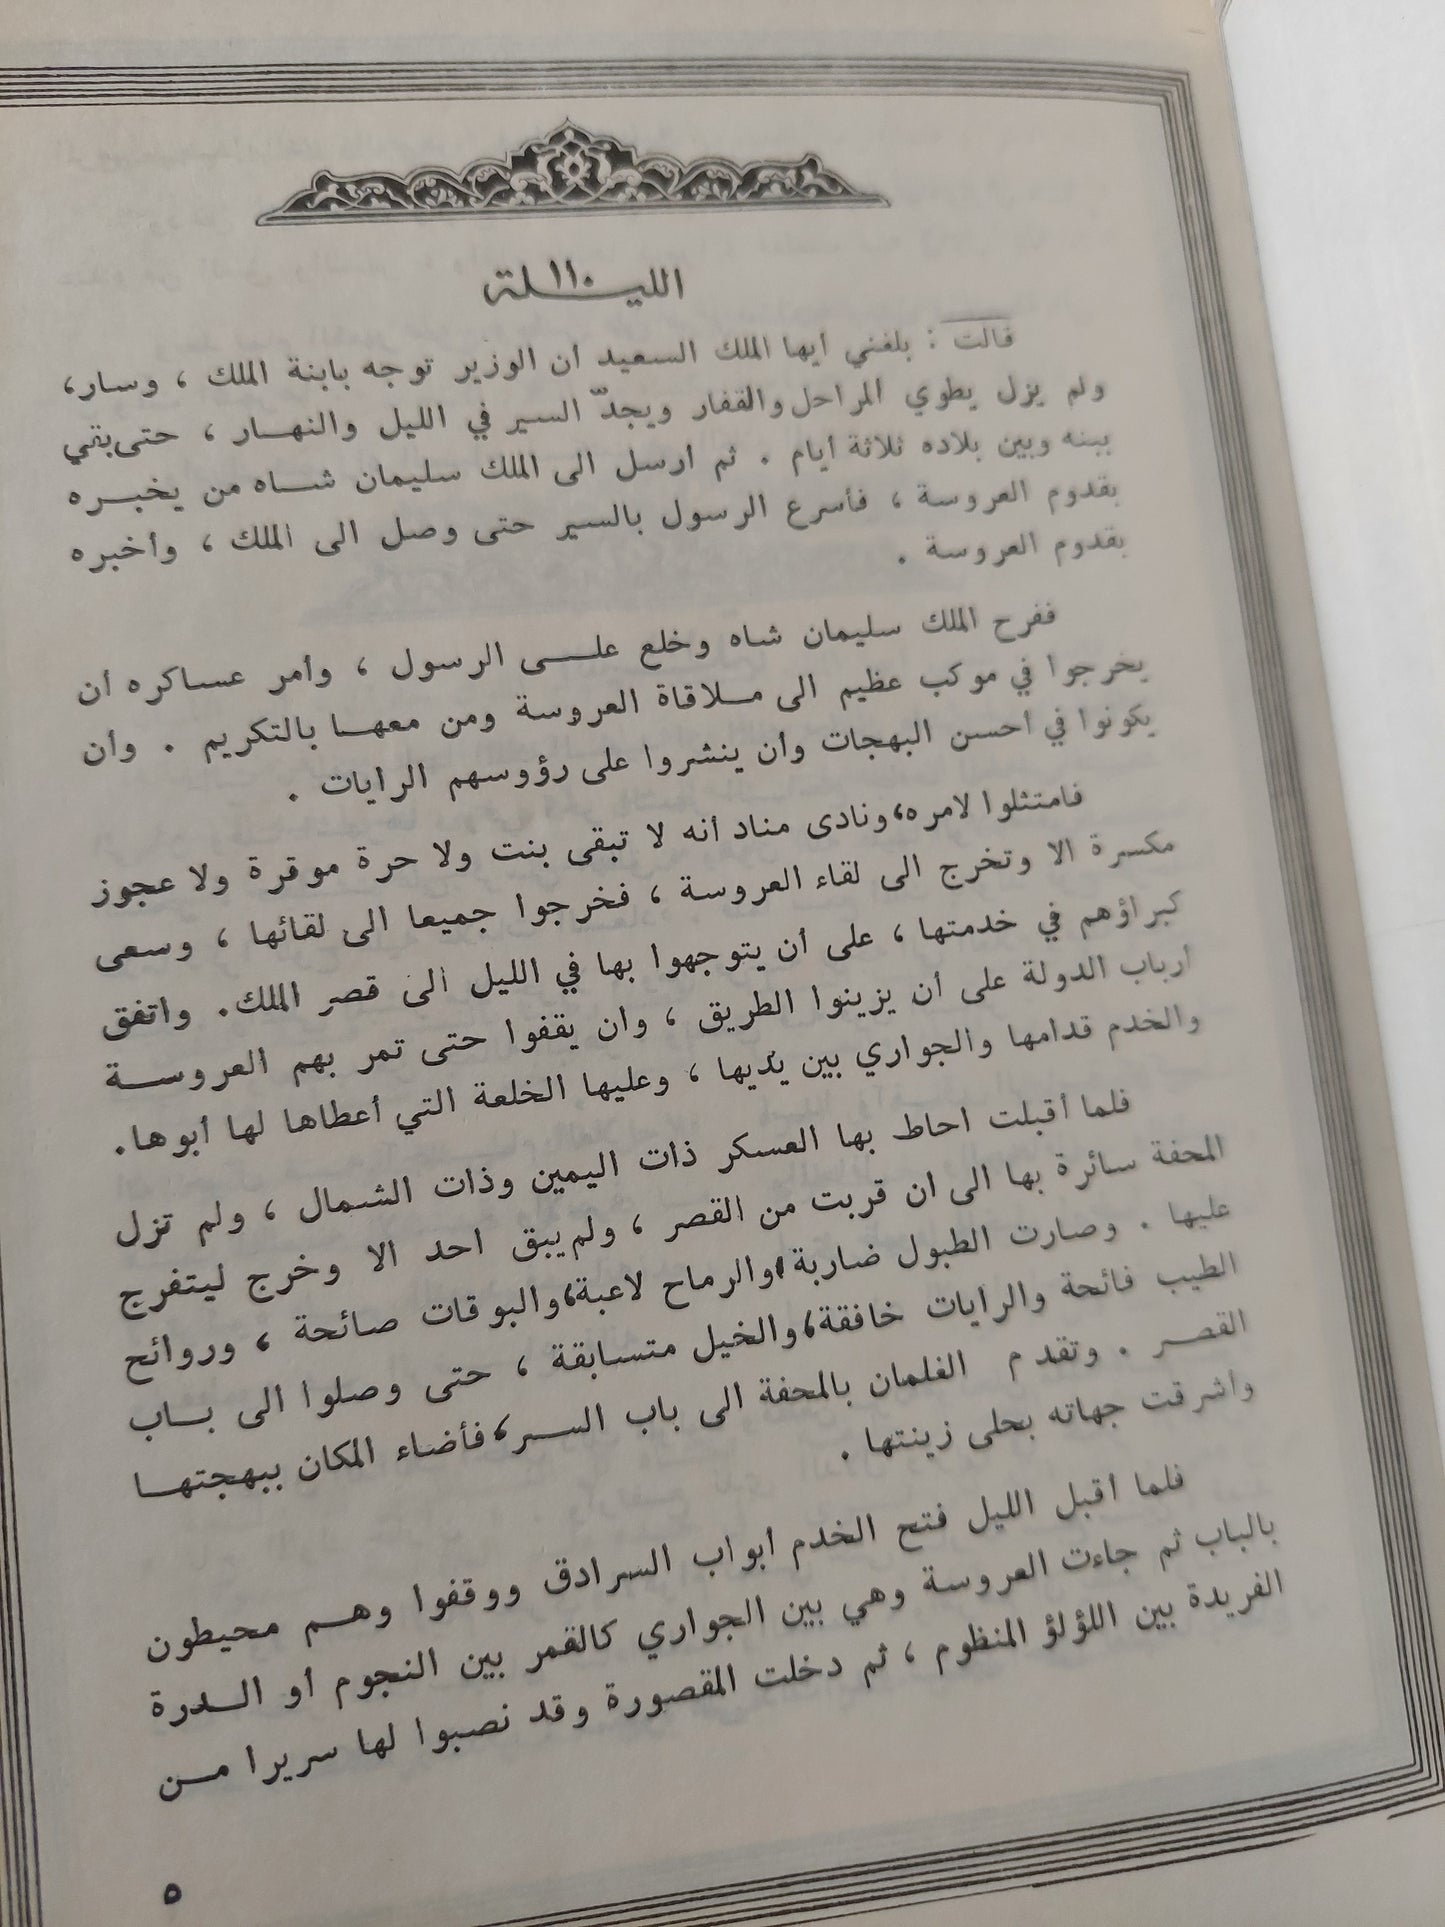 الليلة ١١٠
قالت : بلغني ايها الملك السعيد ان الوزير توجه بابنة الملك ، وسار،
ولم يزل يطوي المراحل والقفار ويجدّ السير في الليل والنهار ، حتى بقي
بينه وبين بلاده ثلاثة ايام . ثم ارسل الى الملك سليمان شاه من يخبره
بقدوم العروسة ، فأسرع الرسول بالسير حتى وصل الى الملك ، وأخبره
بقدوم العروسة .
ففرح الملك سليمان شاه وخلع على الرسول ، وأمر عساكره أن
يخرجوا في موكب عظيم الى ملاقاة العروسة ومن معها بالتكريم . وأن
يكونوا في أحسن البهجات وأن ينشروا على رؤوسهم الرايات .
فامتثلوا لامره، ونادى مناد أنه لا تبقى بنت ولا حرة موقرة ولا عجوز
مكسرة الا وتخرج الى لقاء العروسة ، فخرجوا جميعا الى لقائها ، وسعى
كبراؤهم في خدمتها ، على أن يتوجهوا بها في الليل الى قصر الملك. واتفق
أرباب الدولة على أن يزينوا الطريق ، وان يقفوا حتى تمر بهم العروسة
والخدم قدامها والجواري بين يديها ، وعليها الخلعة التي أعطاها لها أبوها.
فلما أقبلت احاط بها العسكر ذات اليمين وذات الشمال ، ولم تزل
المحفة سائرة بها الى ان قربت من القصر ، ولم يبق احد الا وخرج ليتفرج
عليها . وصارت الطبول ضاربة، والرماح لاعبة، والبوقات صائحة ، وروائح
الطيب فائحة والرايات خافقة، والخيل متسابقة ، حتى وصلوا الى باب
القصر . وتقدم الغلمان بالمحفة الى باب السر، فأضاء المكان ببهجتها
واشرقت جهاته بحلى زينتها .
فلما أقبل الليل فتح الخدم أبواب السرادق ووقفوا وهم محيطون
بالباب ثم جاءت العروسة وهي بين الجواري كالقمر بين النجوم أو الدرة
الفريدة بين اللؤلؤ المنظوم ، ثم دخلت المقصورة وقد نصبوا لها سريرا من
٥